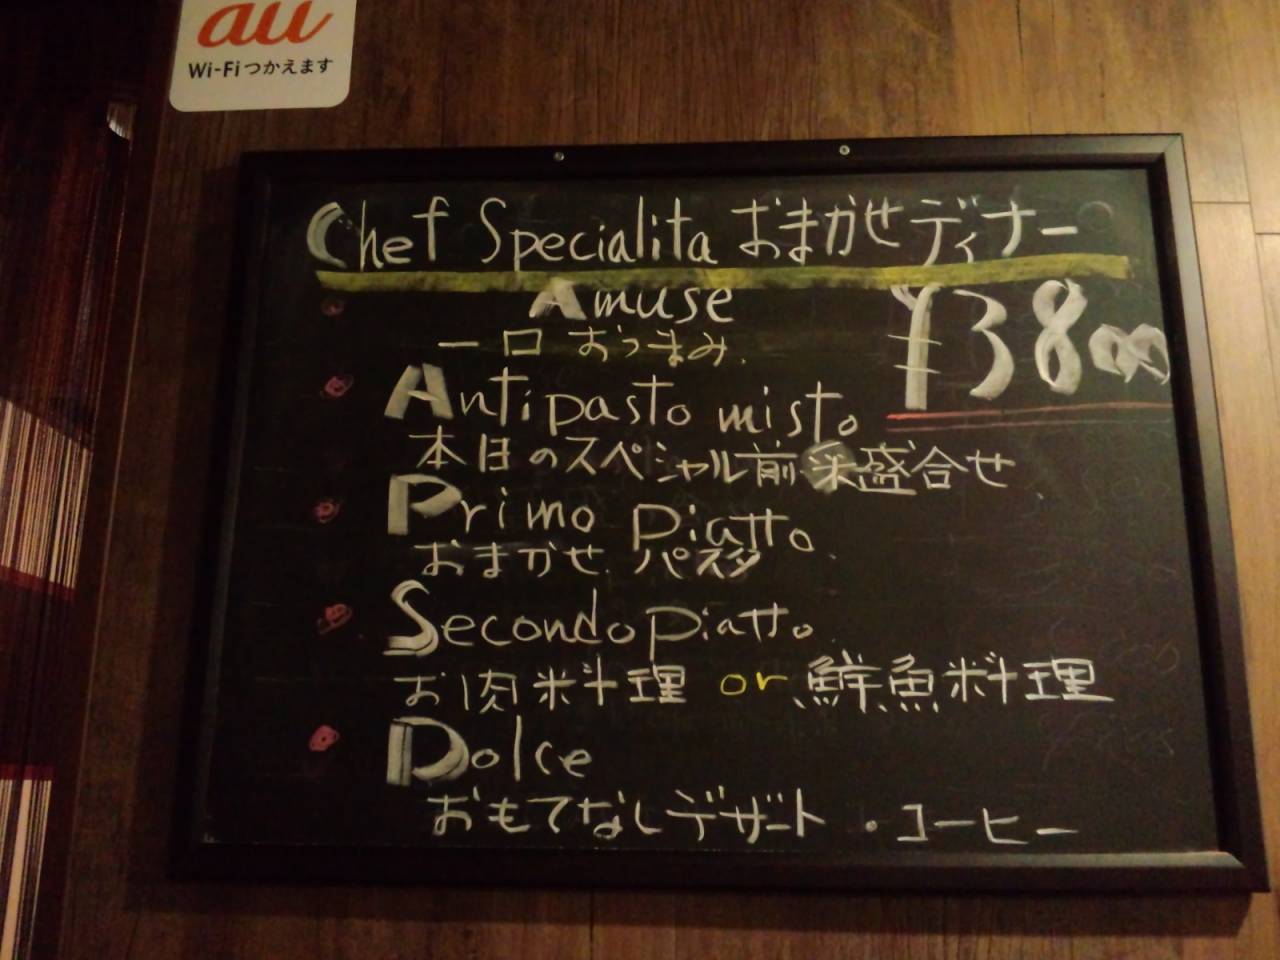 au
Wi-Fiつかえます
Chef Specialita おまかせディナー
Amuse
¥3800
一口 おつまみ.
Antipasto misto
本日のスペシャル前菜盛合せ
Primo Piatto
おまかせ パスタ
Secondo Piatto
お肉料理 or 鮮魚料理
Dolce
おもてなしデザート・コーヒー